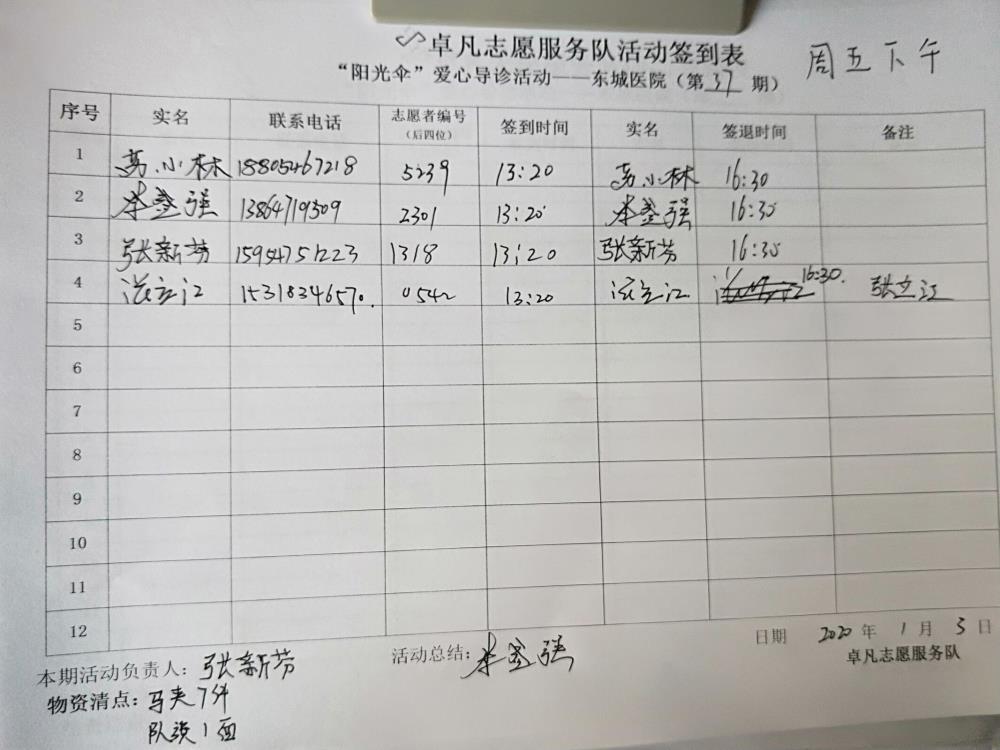 卓凡志愿服务队活动签到表
周五下午
“阳光伞”爱心导诊活动——东城医院（第37期）
序号 实名 联系电话 志愿者编号（后四位） 签到时间 实名 签退时间 备注
1 小林 18805467218 5239 13:20 小林 16:30
2 李 强 13864719509 2301 13:20 李 强 16:30
3 张新芬 15954751223 1318 13:20 张新芬 16:30
4 立江 15318346570. 0542 13:20 立江 16:30. 张立江
5
6
7
8
9
10
11
12
日期 2020年1月3日
本期活动负责人：张新芬 活动总结：李 强
卓凡志愿服务队
物资清点：马夹7件
队旗1面